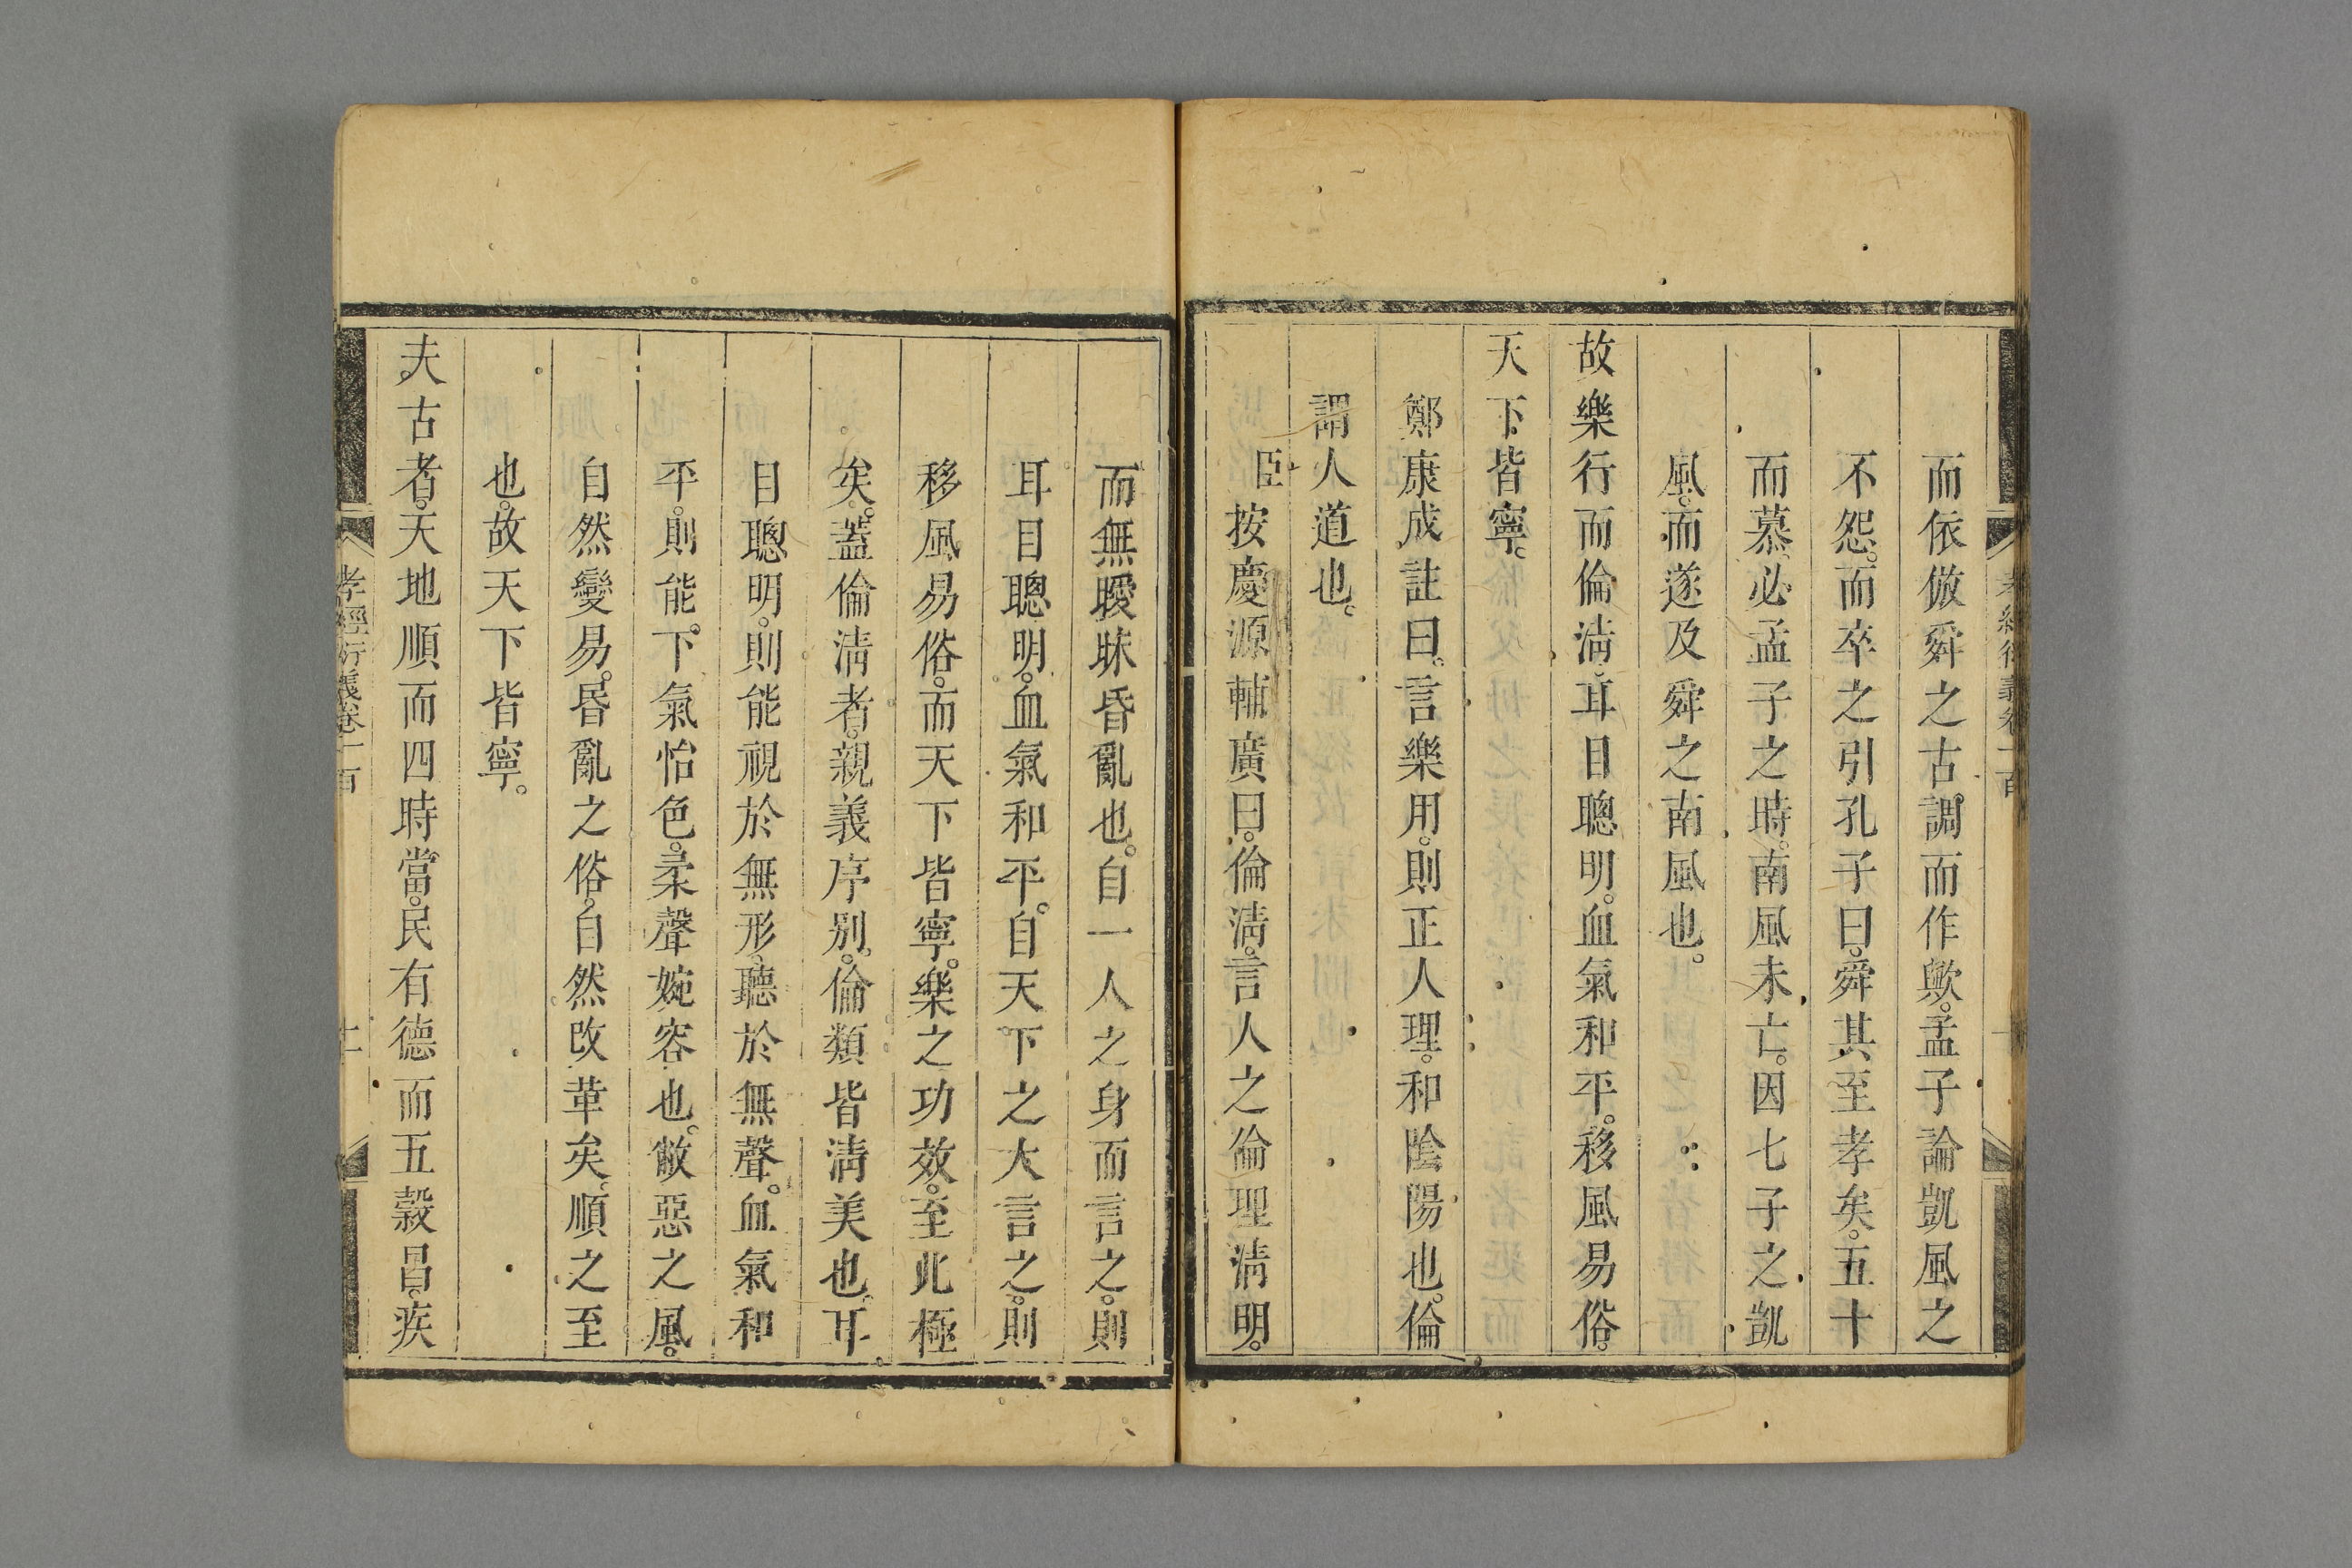 而依倣舜之古調而作歟。孟子論凱風之
不怨。而卒之引孔子曰。舜其至孝矣。五十
而慕。必孟子之時。南風未亡。因七子之凱
風。而遂及舜之南風也。
故樂行而倫淸。耳目聰明。血氣和平。移風易俗。
天下皆寧。
鄭康成註曰。言樂用。則正人理。和陰陽也。倫
謂人道也。
臣按慶源輔廣曰。倫淸。言人之倫理淸明。
而無曖昧昏亂也。自一人之身而言之。則
耳目聰明。血氣和平。自天下之大言之。則
移風易俗。而天下皆寧。樂之功效。至此極
矣。蓋倫淸者。親義序别。倫類皆淸美也。耳
目聰明。則能視於無形。聽於無聲。血氣和
平。則能下氣怡色。柔聲婉容也。敝惡之風。
自然變易。昏亂之俗。自然改革矣。順之至
也。故天下皆寧。
夫古者。天地順而四時當。民有德而五穀昌。疾
孝經衍義卷一百